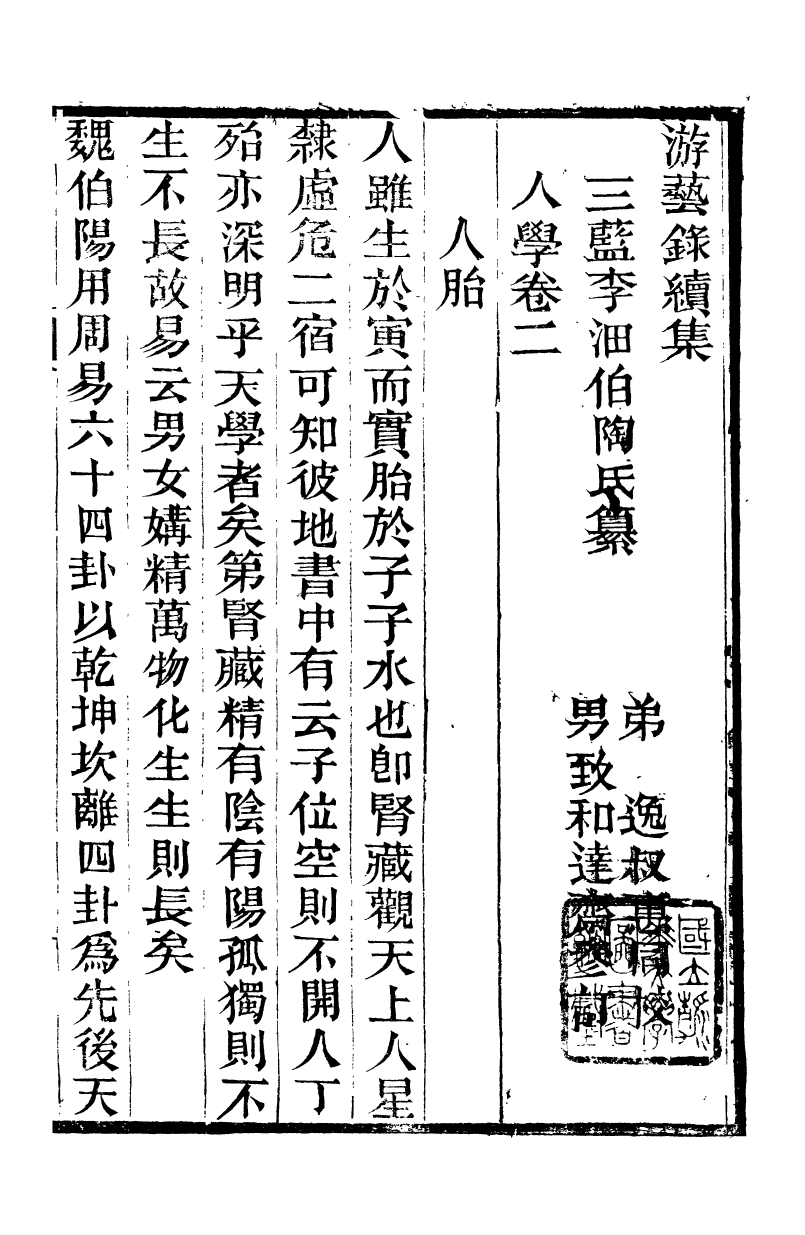 游藝錄續集
三藍李沺伯陶氏纂
弟　逸叔
男致和達
人學卷二
人胎
人雖生於寅而實胎於子子水也卽腎藏觀天上人星
隸虛危二宿可知彼地書中有云子位空則不開人丁
殆亦深明乎天學者矣第腎藏精有陰有陽孤獨則不
生不長故易云男女媾精萬物化生生則長矣
魏伯陽用周易六十四卦以乾坤坎離四卦爲先後天